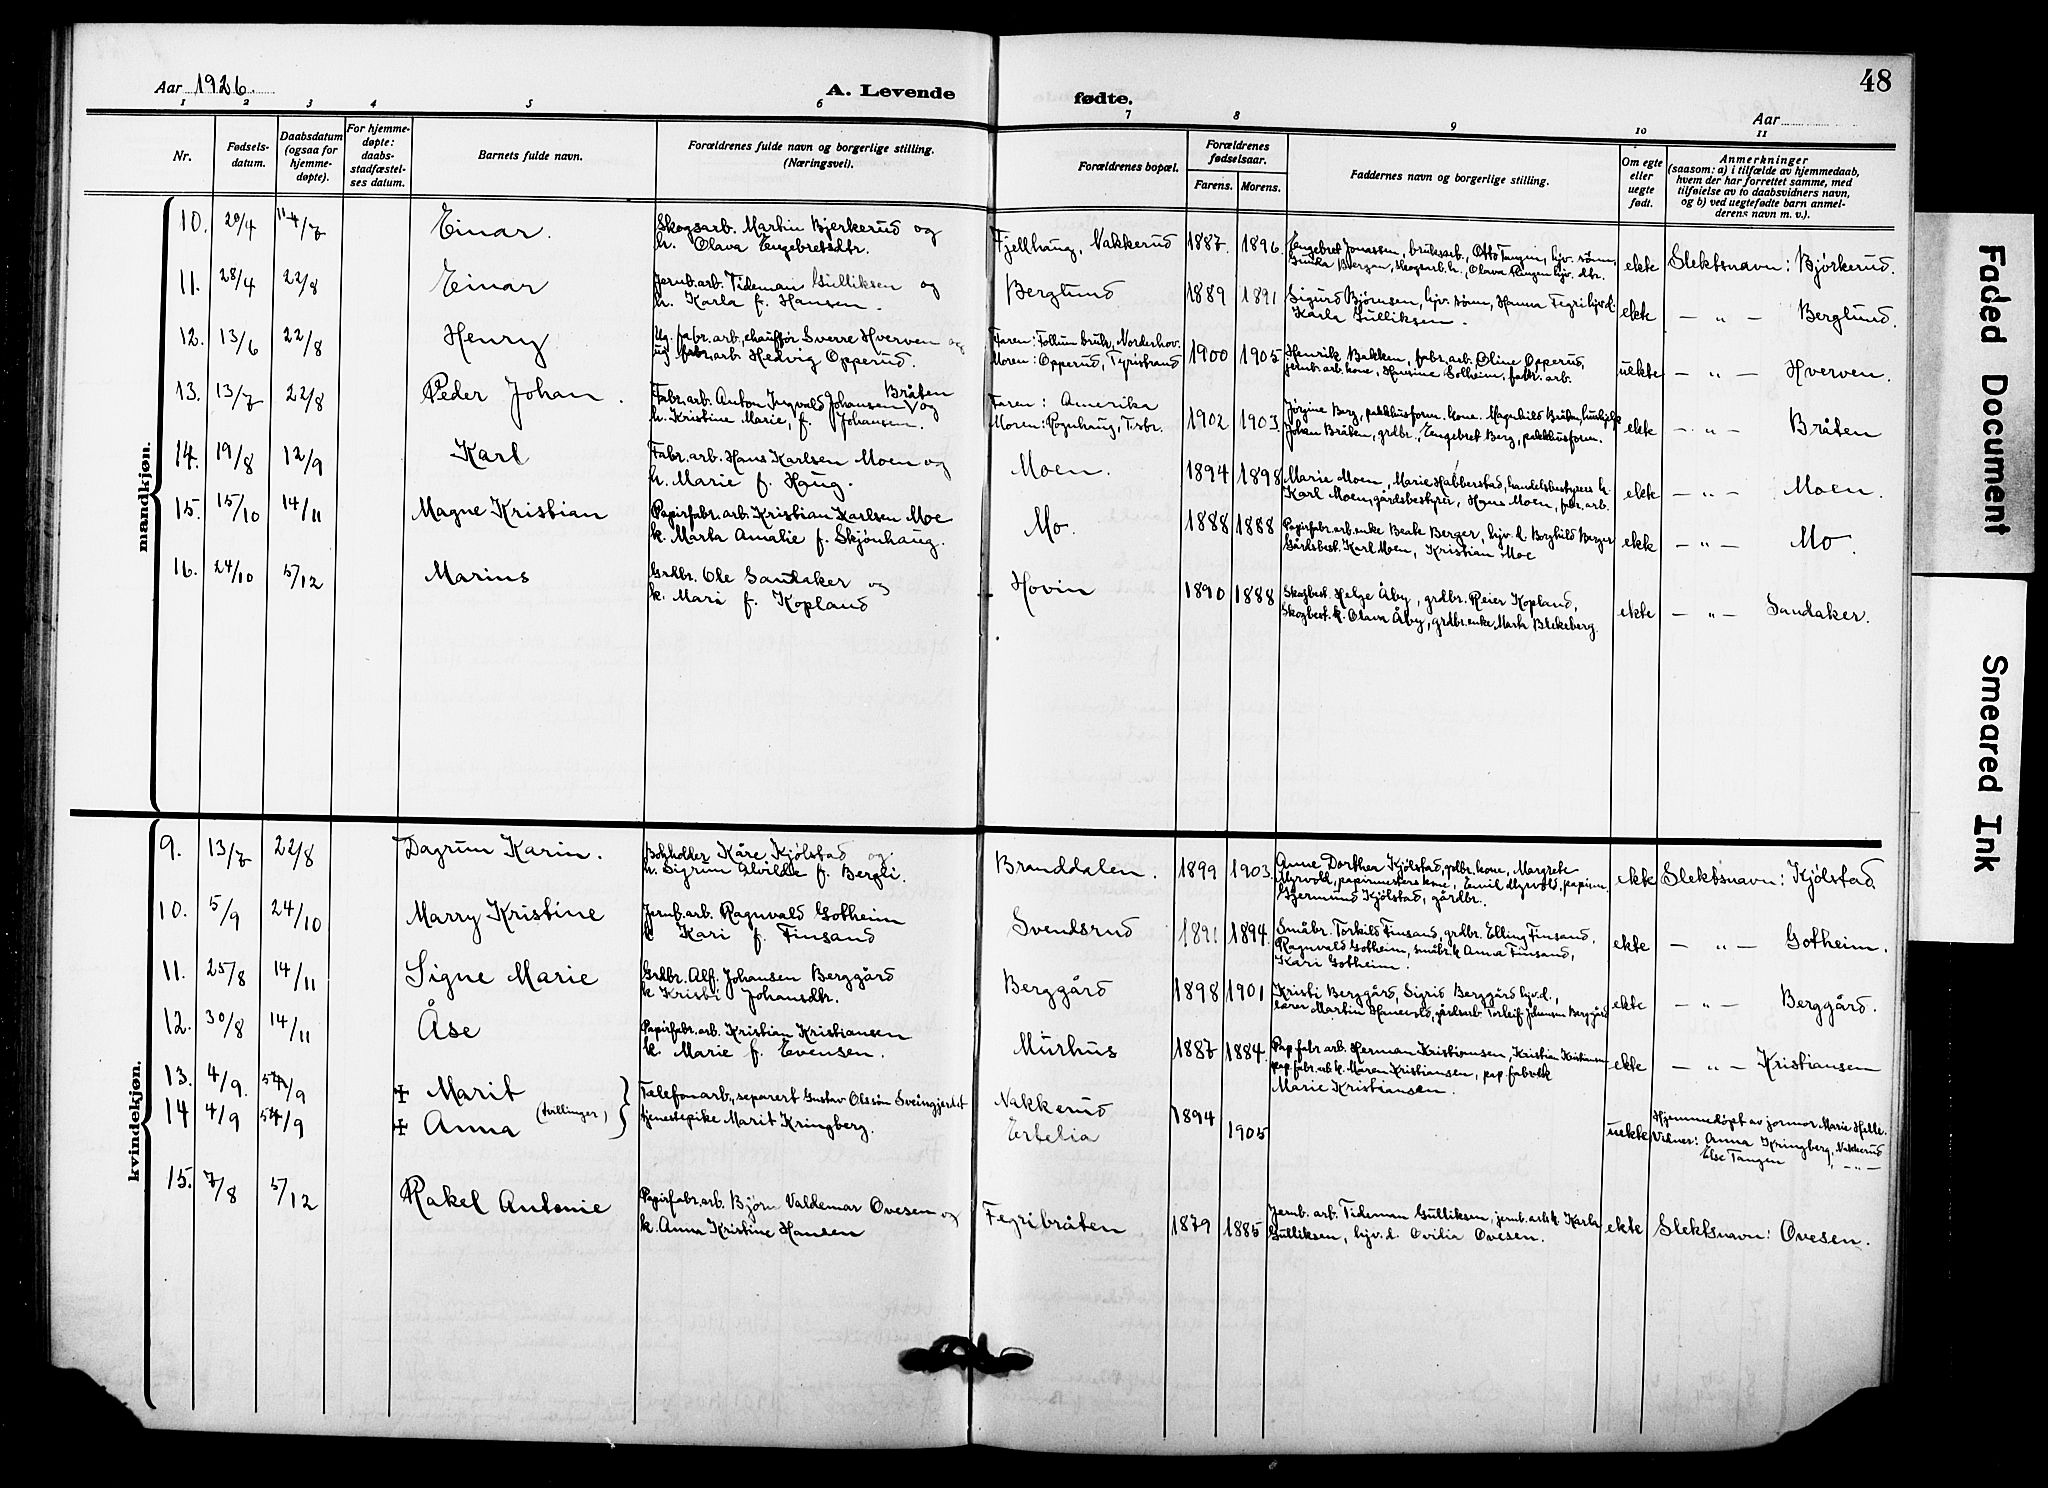 Aar 1926. A. Levende fødte. 48
Aar
1 2 3 4 5 6 7 8 9 10 11
Nr.
Fødsels-
datum.
Daabsdatum
(ogsaa for
hjemme-
døpte).
For hjemme-
døpte:
daabs-
stadfæstel-
ses datum.
Barnets fulde navn.
Forældrenes fulde navn og borgerlige stilling.
(Næringsvei).
Forældrenes bopæl.
Forældrenes
fødselsaar.
Farens. Morens.
Faddernes navn og borgerlige stilling.
Om egte
eller
uegte
født.
Anmerkninger
(saasom: a) i tilfælde av hjemmedaab,
hvem der har forrettet samme, med
tilføielse av to daabsvidners navn,
og b) ved uegtefødte barn anmel-
derens navn m. v.).
mandkjøn.
10. 20/4 11/7 Einar. Skogsarb. Martin Bjerkerud og
h. Olava Engebretsdtr.
Fjellhaug, Nakkerud 1887. 1896. Engebret Jonassen, bruksarb., Otto Tangen, hjv. sønn,
Bergan, skogsarb. h., Olava Ringen hjv. dtr.
ekte Slektsnavn: Bjørkerud.
11. 28/4 22/8 Einar Jernb.arb. Tideman Gulliksen og
h. Karla f. Hansen.
Berglund 1889 1891 Sigurd Bjørnsen, hjv. sønn, Hanna Fegri hjv.d.
Karla Gulliksen.
ekte — „ — Berglund.
12. 13/6 22/8 Henry Ug. fabr. arb., chauffør Sverre Hverven og
ug. fabr.arb Hedvig Opperud.
Faren: Follum bruk, Norderhov.
Moren: Opperud, Tyristrand 1900 1905 Henrik Bakken, fabr. arb. Oline Opperud,
jernb. arb. kone, Henrine Solheim, fabr. arb.
uekte — „ — Hverven.
13. 13/7 22/8 Peder Johan. Fabr. arb. Anton Ingvald Johansen Bråten og
h. Kristine Marie, f. Johansen.
Faren: Amerika
Moren: Rognhaug, Trsbr. 1902 1903. Jørgine Berg, pakkhusform. kone. Magnhild Bråten, hushjelp
Johan Bråten, grdbr., Engebret Berg, pakkhusform.
ekte — „ — Bråten
14. 19/8 12/9 Karl Fabr. arb. Hans Karlsen Moen og
h. Marie f. Haug.
Moen. 1894 1898 Marie Moen, Marie Habberstad, handelsbestyrers h.
Karl Moen, gårdsbestyrer, Hans Moen, fabr. arb.
ekte — „ — Moen.
15. 15/10 14/11 Magne Kristian Papirfabr. arb. Kristian Karlsen Moe
k. Marta Amalie f. Skjønhaug.
Mo. 1888 1888 Papirfabr. arb. enke Beate Berger, hjv. d. Borghild Berger
Gårdsbest. Karl Moen, Kristian Moe
ekte — „ — Mo.
16. 24/10 5/12 Marius Grdbr. Ole Sandaker og
k. Mari f. Kopland
Hovin 1890 1888 Skogbest. Helge Åby, grdbr. Reier Kopland,
Skogbest. k. Olava Åby, grdbr. enke Marte Blekeberg.
ekte — „ — Sandaker.
kvindekjøn.
9. 13/7 22/8 Dagrun Karin. Bokholder Kåre Kjølstad og
h. Sigrun Alvilde f. Bergli.
Branddalen. 1899 1903. Anne Dorthea Kjølstad, grdbr. kone, Margrete
Myrvold, papirmesters kone, Emil Myrvold, papirm.
Gjermund Kjølstad, gårdbr.
ekte Slektsnavn: Kjølstad
10. 5/9 24/10 Marry Kristine Jernb. arb. Ragnvald Gotheim
k Kari f. Finsand
Svendsrud 1891 1894. Småbr. Torkild Finsand, grdbr. Elling Finsand,
Ragnvald Gotheim, småbr. k Anna Finsand,
Kari Gotheim.
ekte — „ — Gotheim.
11. 25/8 14/11 Signe Marie Grdbr. Alf. Johansen Berggård
k Kristi Johansdtr.
Berggård 1898 1901 Kristi Berggård, Sigrid Berggård hjv.d.,
lærer Martin Hanevold, gårdsarb. Torleif Johansen Berggård
ekte — „ — Berggård.
12. 30/8 14/11 Åse Papirfabr. arb. Kristian Kristiansen
k. Marie f. Evensen.
Murhus 1887 1884. Pap. fabr. arb. Herman Kristiansen, Kristian Kristiansen
pap. fabr. arb k. Maren Kristiansen, pap. fabr. arb. k
Marie Kristiansen.
ekte — „ — Kristiansen
13. 4/9. 5/9 ✠ Marit
14 4/9 5/9 ✠ Anna (tvillinger)
Telefonarb., separert Gustav Olssøn Sveingjerdet
tjenestepike Marit Kringberg.
Nakkerud
Ertelia
1894 1905 uekte Hjemmedøpt av jormor Marie Helle.
Vidner: Anna Kringberg, Nakkerud
Else Tangen — „ —
15. 7/8 5/12 Rakel Antonie Papirfabr. arb. Bjørn Valdemar Ovesen og
k. Anna Kristine Hansen
Fegribråten 1879 1885 Jernb. arb. Tideman Gulliksen, jernb. arb k. Karla
Gulliksen, hjv. d. Ovilia Ovesen.
ekte Slektsnavn: Ovesen.
Faded Document
Smeared Ink